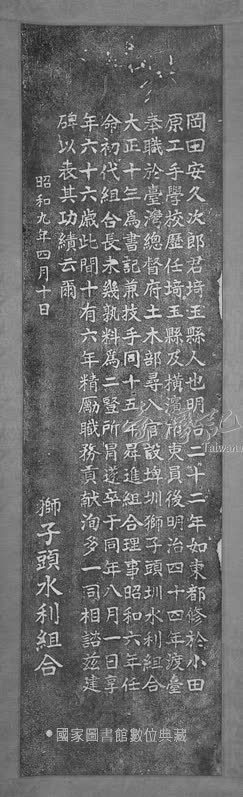 岡田安久次郎君埼玉縣人也明治二十二年如東都修於小田
原工手學校歷任埼玉縣及橫濱市吏員後明治四十四年渡臺
奉職於臺灣總督府土木部尋入官設埤圳獅子頭圳水利組合
大正十三為書記兼技手同十五年昇進組合理事昭和六年任
命初代組合長未幾孰料為二豎所冒遂卒于同年八月一日享
年六十六歲此間十有六年精勵職務貢献洵多一司相諮茲建
碑以表其功績云爾
昭和九年四月十日
獅子頭水利組合
國家圖書館數位典藏